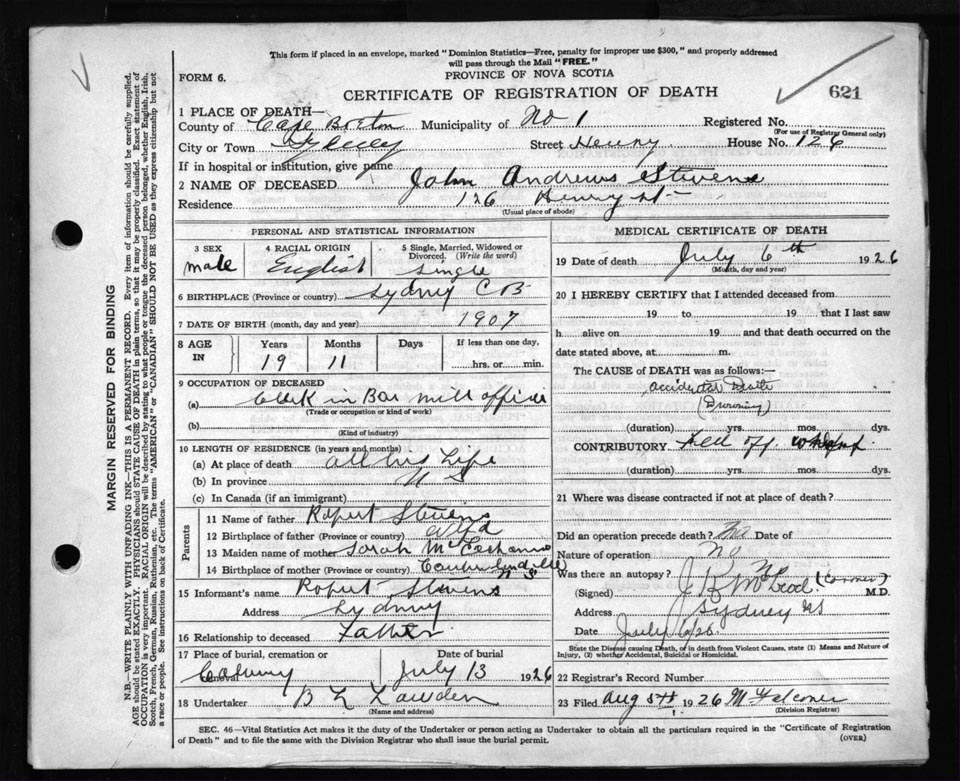 This form if placed in an envelope, marked "Dominion Statistics—Free, penalty for improper use $300," and properly addressed
will pass through the Mail "FREE."
FORM 6.
PROVINCE OF NOVA SCOTIA
CERTIFICATE OF REGISTRATION OF DEATH
621
1 PLACE OF DEATH—
County of Cape Breton Municipality of No 1 Registered No.
(For use of Registrar General only)
City or Town Sydney Street Henry House No. 126
If in hospital or institution, give name
2 NAME OF DECEASED John Andrews Stevens
Residence 126 Henry St
(Usual place of abode)
PERSONAL AND STATISTICAL INFORMATION
3 SEX 4 RACIAL ORIGIN 5 Single, Married, Widowed or
Divorced. (Write the word)
male English single
6 BIRTHPLACE (Province or country) Sydney C B
7 DATE OF BIRTH (month, day and year) 1907
8 AGE IN Years Months Days If less than one day,
19 11 hrs. or min.
9 OCCUPATION OF DECEASED
(a) Clerk in Bar mill office
(Trade or occupation or kind of work)
(b)
(Kind of industry)
10 LENGTH OF RESIDENCE (in years and months)
(a) At place of death all his Life
(b) In province N S
(c) In Canada (if an immigrant)
Parents
11 Name of father Robert Stevens
12 Birthplace of father (Province or country)
13 Maiden name of mother Sarah
14 Birthplace of mother (Province or country) N S
15 Informant's name Robert Stevens
Address Sydney
16 Relationship to deceased Father
17 Place of burial, cremation or Date of burial
July 13 1926
18 Undertaker B L
(Name and address)
MEDICAL CERTIFICATE OF DEATH
19 Date of death July 6th 1926
(Month, day and year)
20 I HEREBY CERTIFY that I attended deceased from
19 to 19 that I last saw
h alive on 19 and that death occurred on
date stated above, at m.
The CAUSE OF DEATH was as follows:—
Accidental Death
(Drowning)
(duration) yrs. mos. dys.
CONTRIBUTORY Fell off wharf
(duration) yrs. mos. dys.
21 Where was disease contracted if not at place of death?
Did an operation precede death? No Date of
Nature of operation No
Was there an autopsy? No
(Signed) J K McLeod (Coroner) M.D.
Address Sydney NS
Date July 6/26.
State the Disease causing Death, or in death from Violent Causes, state (1) Means and Nature of
Injury, (2) whether Accidental, Suicidal or Homicidal.
22 Registrar's Record Number
23 Filed Aug 5th 1926 M Falconer
(Division Registrar)
SEC. 46—Vital Statistics Act makes it the duty of the Undertaker or person acting as Undertaker to obtain all the particulars required in the "Certificate of Registration
of Death" and to file the same with the Division Registrar who shall issue the burial permit.
(OVER)
MARGIN RESERVED FOR BINDING
N.B.—WRITE PLAINLY WITH UNFADING INK—THIS IS A PERMANENT RECORD. Every item of information should be carefully supplied.
AGE should be stated EXACTLY. PHYSICIANS should STATE CAUSE OF DEATH in plain terms, so that it may be properly classified. Exact statement of
OCCUPATION is very important. RACIAL ORIGIN will be described by stating to what people or tongue the deceased person belonged, whether English, Irish,
Scotch, French, German, Russian, Ruthenian, etc. The terms "AMERICAN" or "CANADIAN" SHOULD NOT BE USED as they express citizenship but not
a race or people. See instructions on back of Certificate.